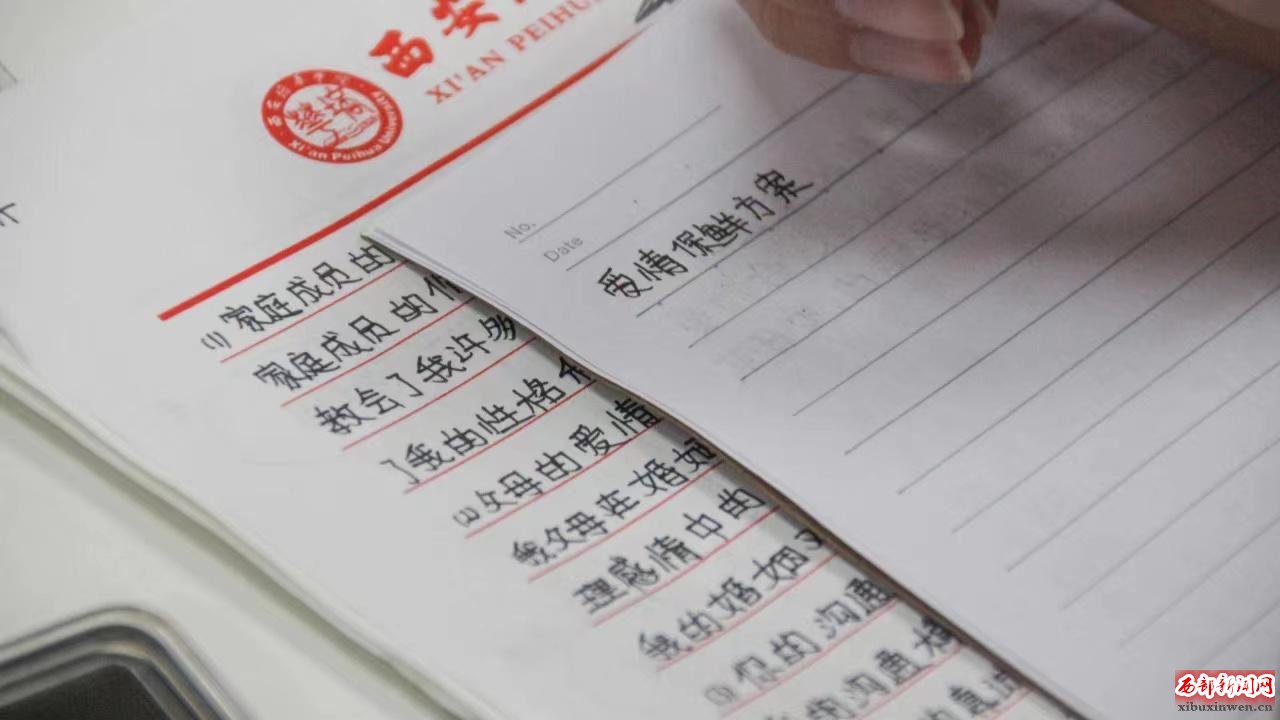 西安
XI'AN PEIHU
Xi'an Peihua University
(1) 家庭成员的
家庭成员的
教会了我许多
了我的性格
(2) 父母的爱情
我父母在婚姻
理感情中的
我的婚姻
你的沟通
沟通
No.
Date
爱情保鲜方案
西部新闻网
xibuxinwen.cn